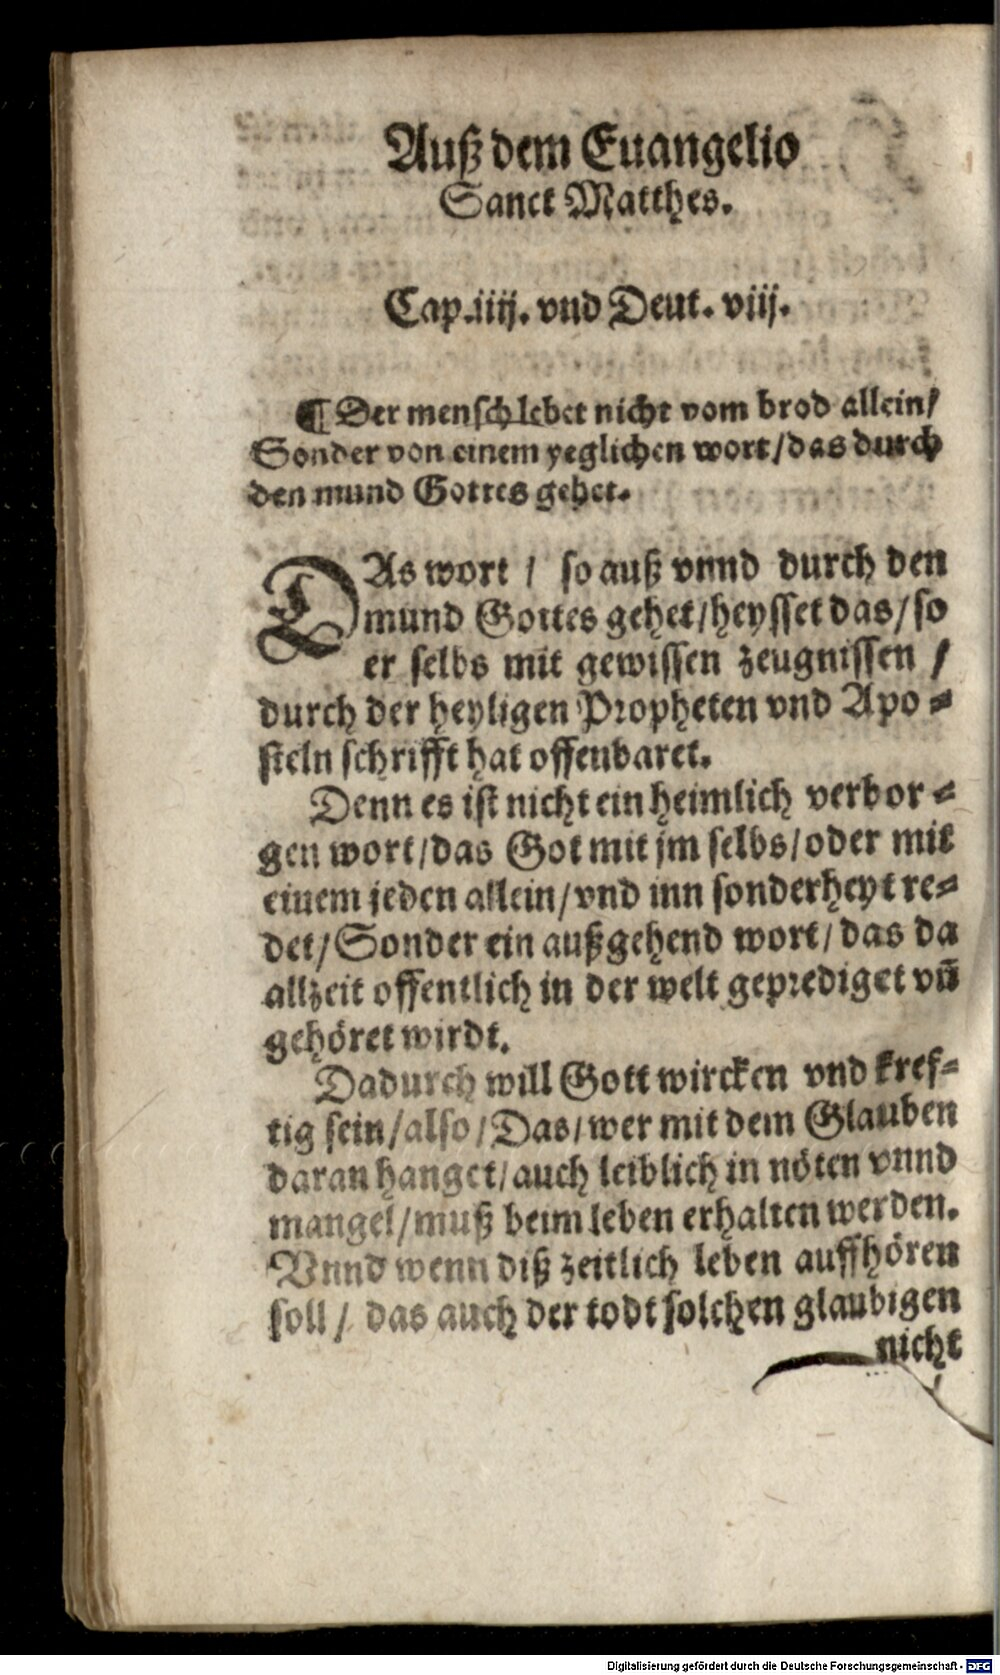 Auß dem Euangelio
Sanct Matthes.
Cap.iiij. vnd Deut. viij.
¶ Der mensch lebet nicht vom brod allein/
Sonder von einem yeglichen wort/das durch
den mund Gottes gehet.
DAs wort / so auß vnnd durch den
mund Gottes gehet/heysset das/so
er selbs mit gewissen zeugnissen /
durch der heyligen Propheten vnd Apo⸗
steln schrifft hat offenbaret.
Denn es ist nicht ein heimlich verbor⸗
gen wort/das Got mit jm selbs/oder mit
einem jeden allein/vnd inn sonderheyt re⸗
det/Sonder ein außgehend wort/das da
allzeit offentlich in der welt geprediget vn̄
gehöret wirdt.
Dadurch will Gott wircken vnd kref⸗
tig sein/also/Das/wer mit dem Glauben
daran hanget/auch leiblich in nöten vnnd
mangel/muß beim leben erhalten werden.
Vnnd wenn diß zeitlich leben auffhören
soll / das auch der todt solchen glaubigen
nicht
Digitalisierung gefördert durch die Deutsche Forschungsgemeinschaft - DFG